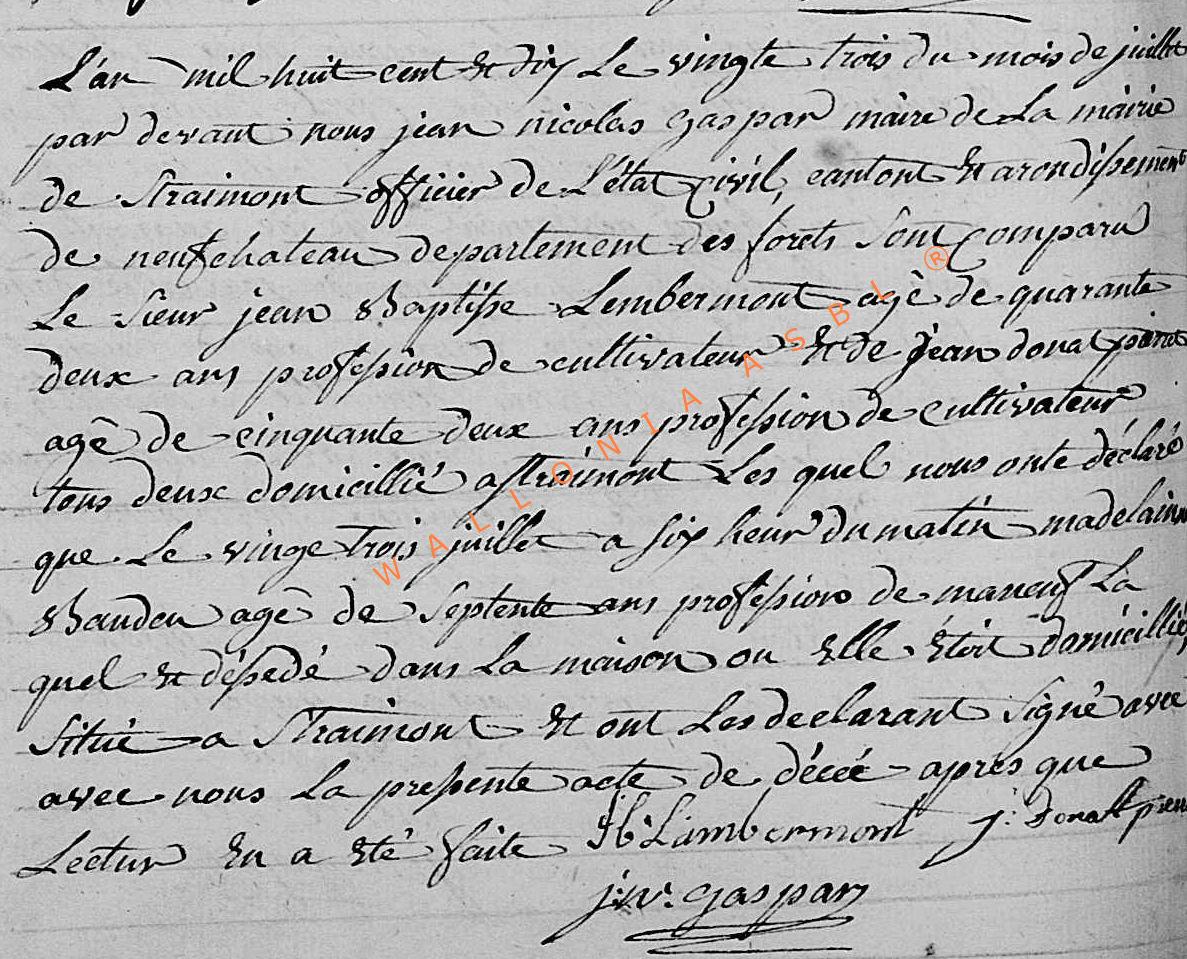 L'an mil huit cent et dix Le vingte trois du mois de juillet
par devant nous jean nicolas gaspar maire de La mairie
de Straimont officier de L'état civil, cantont et arondissement
de neufchateau departement des forets sont comparu
Le sieur jean Baptisse Lembermont agé de quarante
deux ans profession de cultivateur et de jean donat
agé de cinquante deux ans profession de cultivateur
tous deux domicillié a straimont Les quel nous onte déclaré
que Le vinge trois juillet a six heur du matin madelainne
Baudou agé de septente ans profession de maneuf La
quel et déssedé dans La maison ou elle étoit domicillié
situé a Straimont et ont Les declarant signé avec
avec nous La pressente acte de décée après que
Lectur en a eté faite Jb. Lambermont j: Donat
j: n: gaspar
WALLONIA ASBL ®